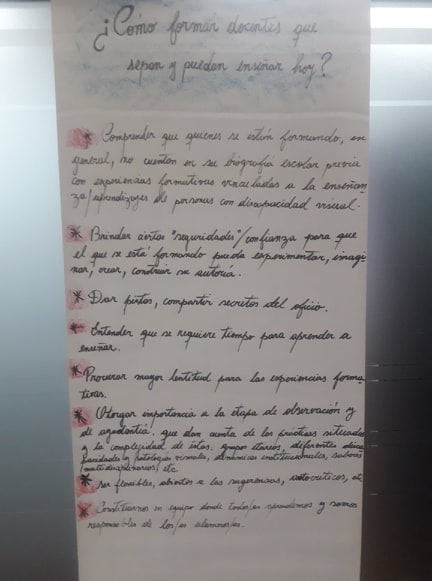 ¿Cómo formar docentes que
sepan y puedan enseñar hoy?
* Comprender que quienes se están formando, en
general, no cuentan en su biografía escolar previa
con experiencias formativas vinculadas a la enseñan
za/aprendizajes de personas con discapacidad visual.
* Brindar ciertas "seguridades"/confianza para que
el que se está formando pueda experimentar, imagi
nar, crear, construir su autoría.
* Dar pistas, compartir secretos del oficio.
* Entender que se requiere tiempo para aprender a
enseñar.
* Procurar mayor lentitud para las experiencias forma
tivas.
* Otorgar importancia a la etapa de observación y
de ayudantía, que dan cuenta de las prácticas situadas
y la complejidad de estas: grupos etarios, diferentes
patologías visuales, dinámicas institucionales, saberes
multidisciplinarios, etc.
* Ser flexibles, abiertos a las sugerencias, autocríticos, etc.
* Constituirnos en equipo donde todos/as aprendemos y somos
responsables de los/as alumnos/as.